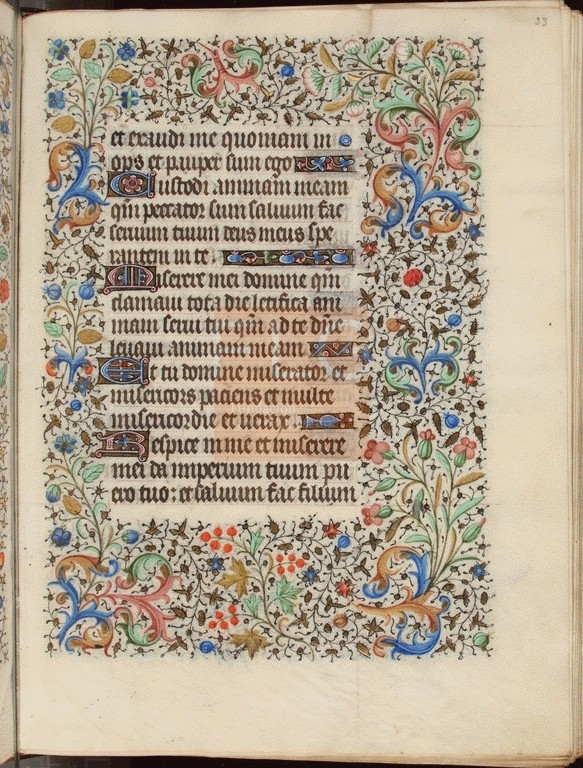 33
et exaudi me quoniam in
ops et pauper sum ego
Custodi animam meam
qm peccator sum saluum fac
seruum tuum deus meus spe
rantem in te
Miserere mei domine qm
clamaui tota die letifica ani
mam serui tui qm ad te dne
leuaui animam meam
Et tu domine miserator et
misericors paciens et multe
misericordie et uerax
Respice in me et miserere
mei da imperium tuum pu
ero tuo: et saluum fac filium